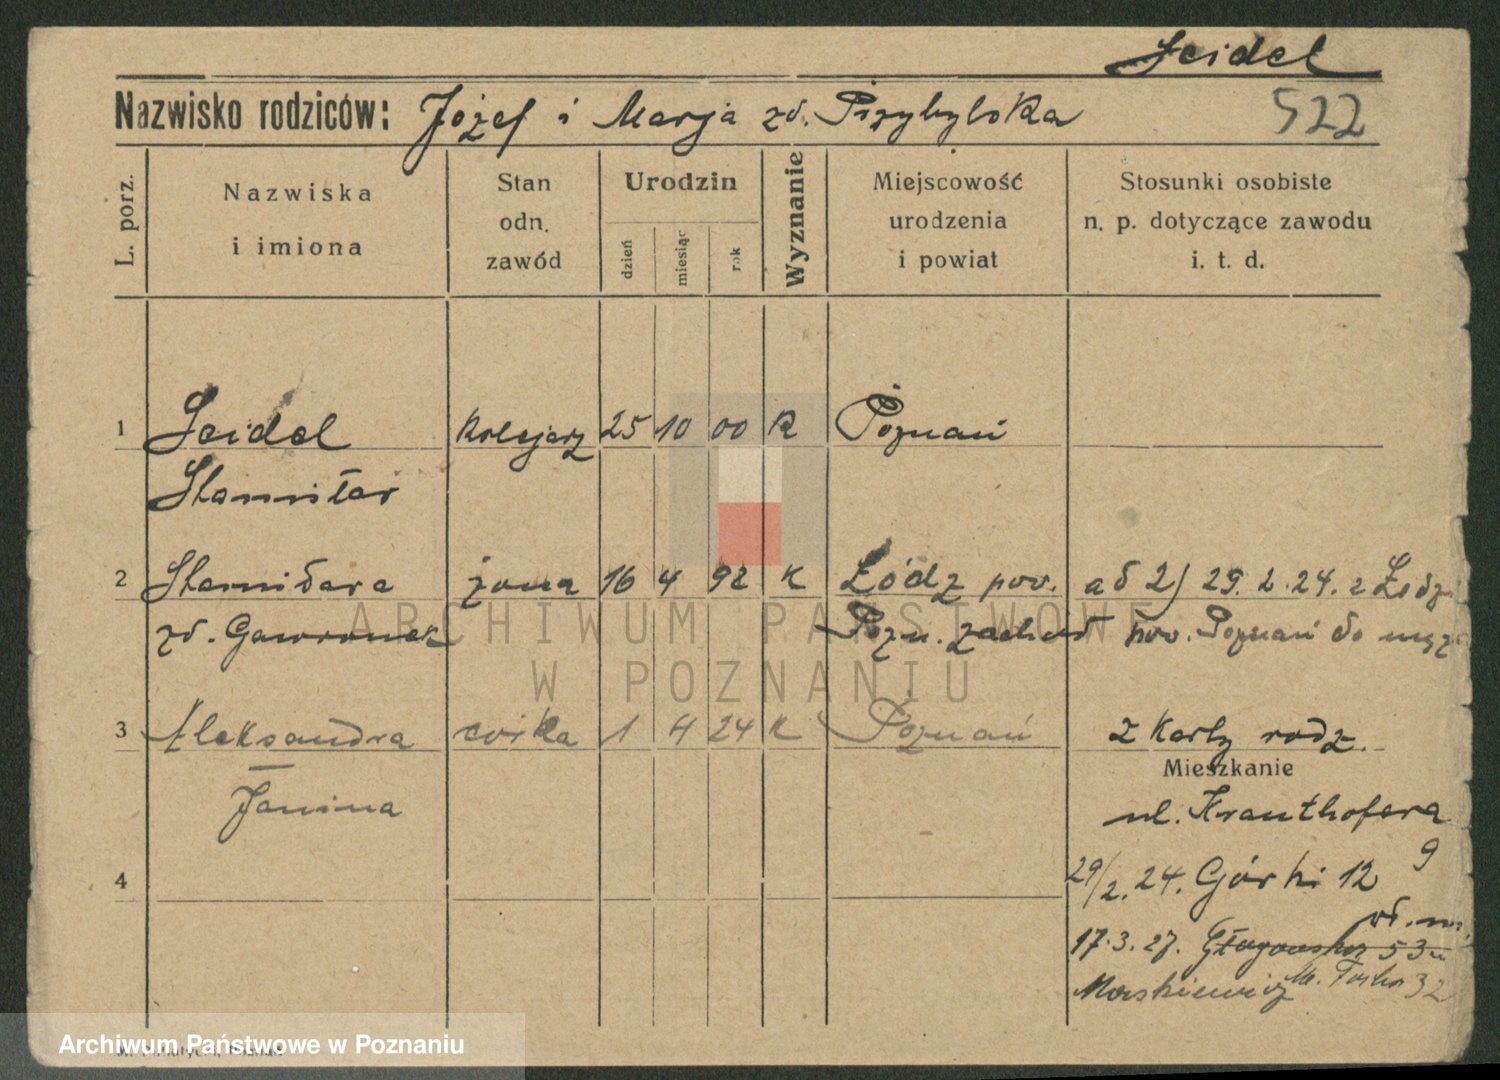 Seidel
Nazwisko rodziców: Józef i Marja zd. Przybylska
522
L. porz.
Nazwiska i imiona
Stan odn. zawód
Urodzin
dzień
miesiąc
rok
Wyznanie
Miejscowość urodzenia i powiat
Stosunki osobiste n. p. dotyczące zawodu i. t. d.
1 Seidel kolejarz 25 10 00 K Poznań
Stanisław
2 Stanisława żona 16 4 92 K Łódz pow. ad 2) 29.2.24. z Łodzi
zd. Gawronek Pozn. zachod pow. Poznań do męż
3 Aleksandra córka 1 4 24 K Poznań z Karty rodz.
Janina
Mieszkanie
ul. Krauthofera
9
4
29/2.24. Górki 12
17.3.27. Głogowska 53
32
ARCHIWUM PAŃSTWOWE
W POZNANIU
Archiwum Państwowe w Poznaniu